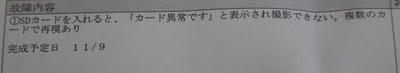 故障内容
①SDカードを入れると、「カード異常です」と表示され撮影できない。複数のカ
ードで再現あり
完成予定日　１１/９